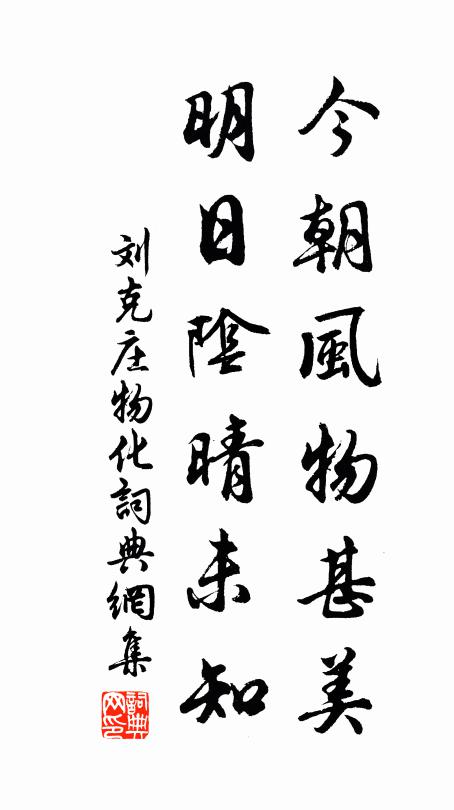 今朝風物甚美
明日陰晴未知
刘克庄物化詞典網集
詞典網印